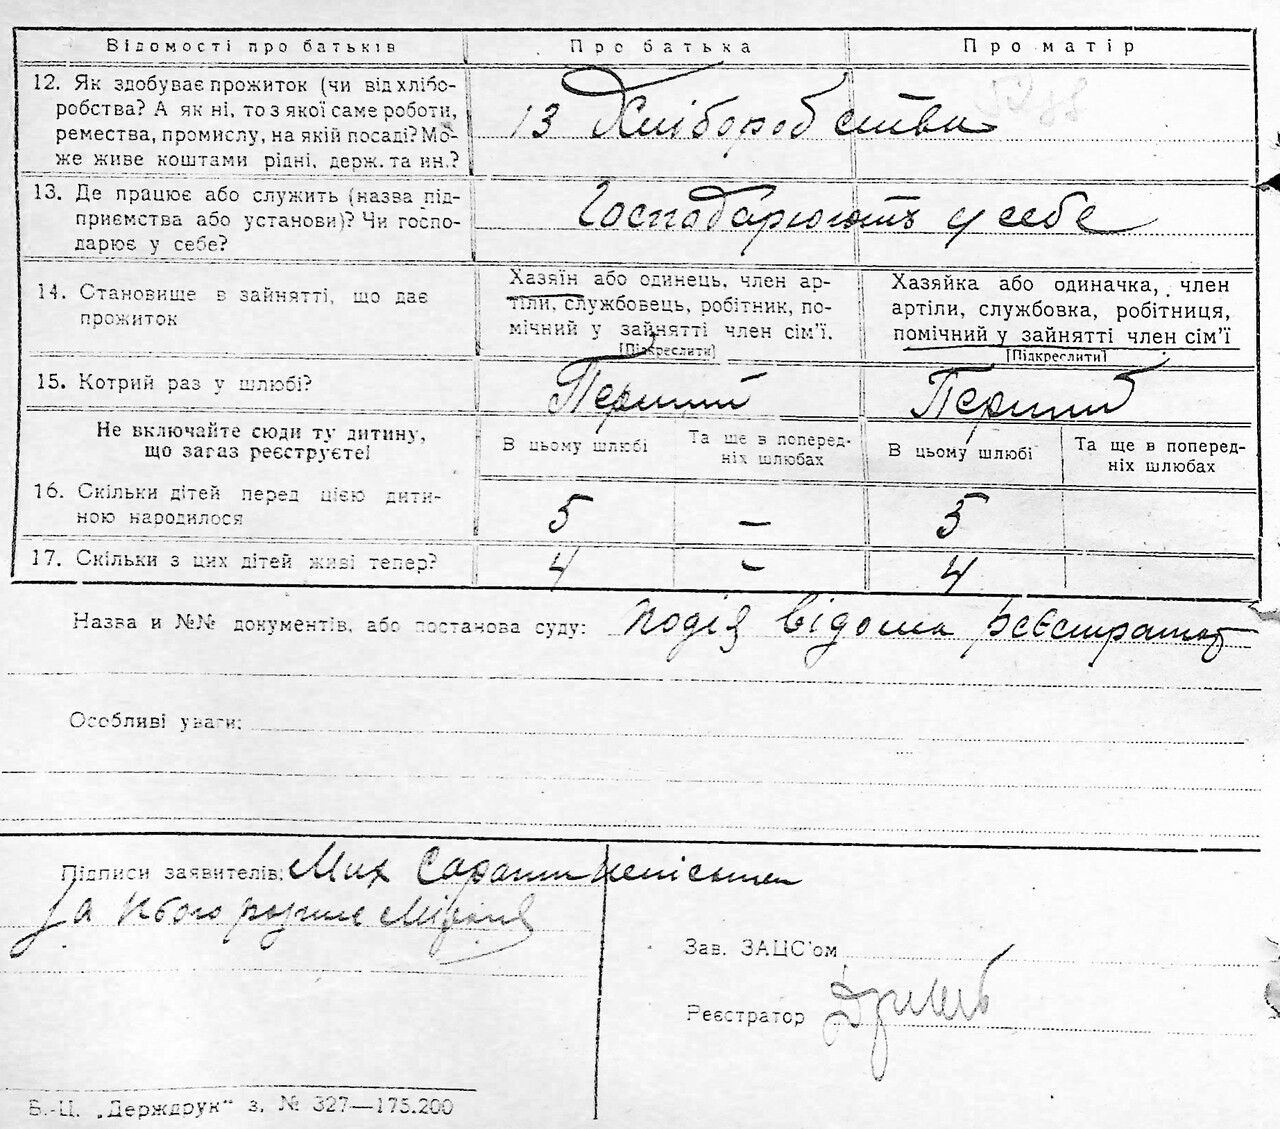 Відомості про батьків Про батька Про матір
12. Як здобуває прожиток (чи від хлібо-
робства? А як ні, то з якої саме роботи,
ремества, промислу, на якій посаді? Мо-
же живе коштами рідні, держ. та ин.?
із Хліборобства
13. Де працює або служить (назва під-
приємства або установи)? Чи госпо-
дарює у себе?
Господарюють у себе
14. Становище в зайнятті, що дає
прожиток
Хазяїн або одинець, член ар-
тіли, службовець, робітник, по-
мічний у зайнятті член сім'ї.
[Підкреслити]
Хазяйка або одиначка, член
артіли, службовка, робітниця,
помічний у зайнятті член сім'ї
[Підкреслити]
15. Котрий раз у шлюбі? Перший Перший
Не включайте сюди ту дитину,
що загаз реєструєте!
В цьому шлюбі
Та ще в поперед-
ніх шлюбах
В цьому шлюбі
Та ще в поперед-
ніх шлюбах
16. Скільки дітей перед цією дити-
ною народилося
5 – 5
17. Скільки з цих дітей живі тепер? 4 – 4
Назва и №№ документів, або постанова суду: подія відома
Особливі уваги:
Підписи заявителів: Мих
За нього
Зав. ЗАЦС'ом
Реєстратор
Б.-Ц. „Держдрук" з. № 327—175.200